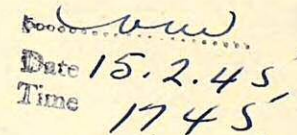 Date 15.2.45,
Time 1745